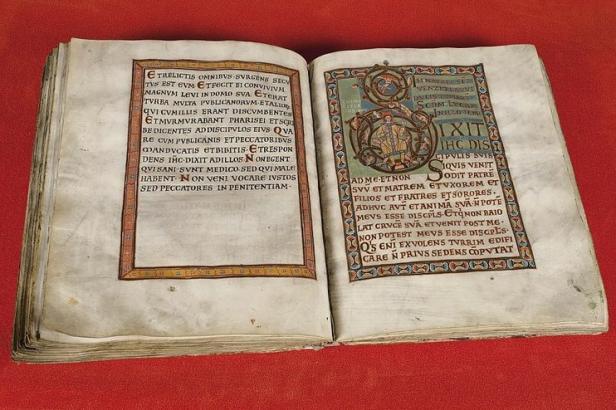 ET RELICTIS OMNIBUS· SURGENS SECU
TUS EST EUM· ET FECIT EI CONVIVIUM
MAGNUM LEVI IN DOMO SUA· ET ERAT
TURBA MULTA PUBLICANORUM· ET ALIORU
QUI CUM ILLIS ERANT DISCUMBENTES·
ET MURMURABANT PHARISEI ET SCRI
BE DICENTES AD DISCIPULOS EIUS· QUA
RE CUM PUBLICANIS ET PECCATORIBUS
MANDUCATIS ET BIBITIS· ET RESPON
DENS IHC· DIXIT AD ILLOS· NON EGENT
QUI SANI SUNT MEDICO· SED QUI MALE
HABENT· NON VENI VOCARE IUSTOS
SED PECCATORES IN PENITENTIAM·
DIXIT
IHC DIS
CIPULIS SUIS
SIQUIS VENIT
AD ME· ET NON ODIT PATRE
SUU ET MATREM ET UXOREM ET
FILIOS ET FRATRES ET SORORES·
ADHUC AUT ET ANIMA SUA· N POTE
MEUS ESSE DISCPLS· ET Q N BAIO
LAT CRUCE SUA ET VENIT POST ME·
NON POTEST MEUS ESSE DISCPLS·
QS ENI EX VOLENS TURRIM EDIFI
CARE N PRIUS SEDENS COPUTAT